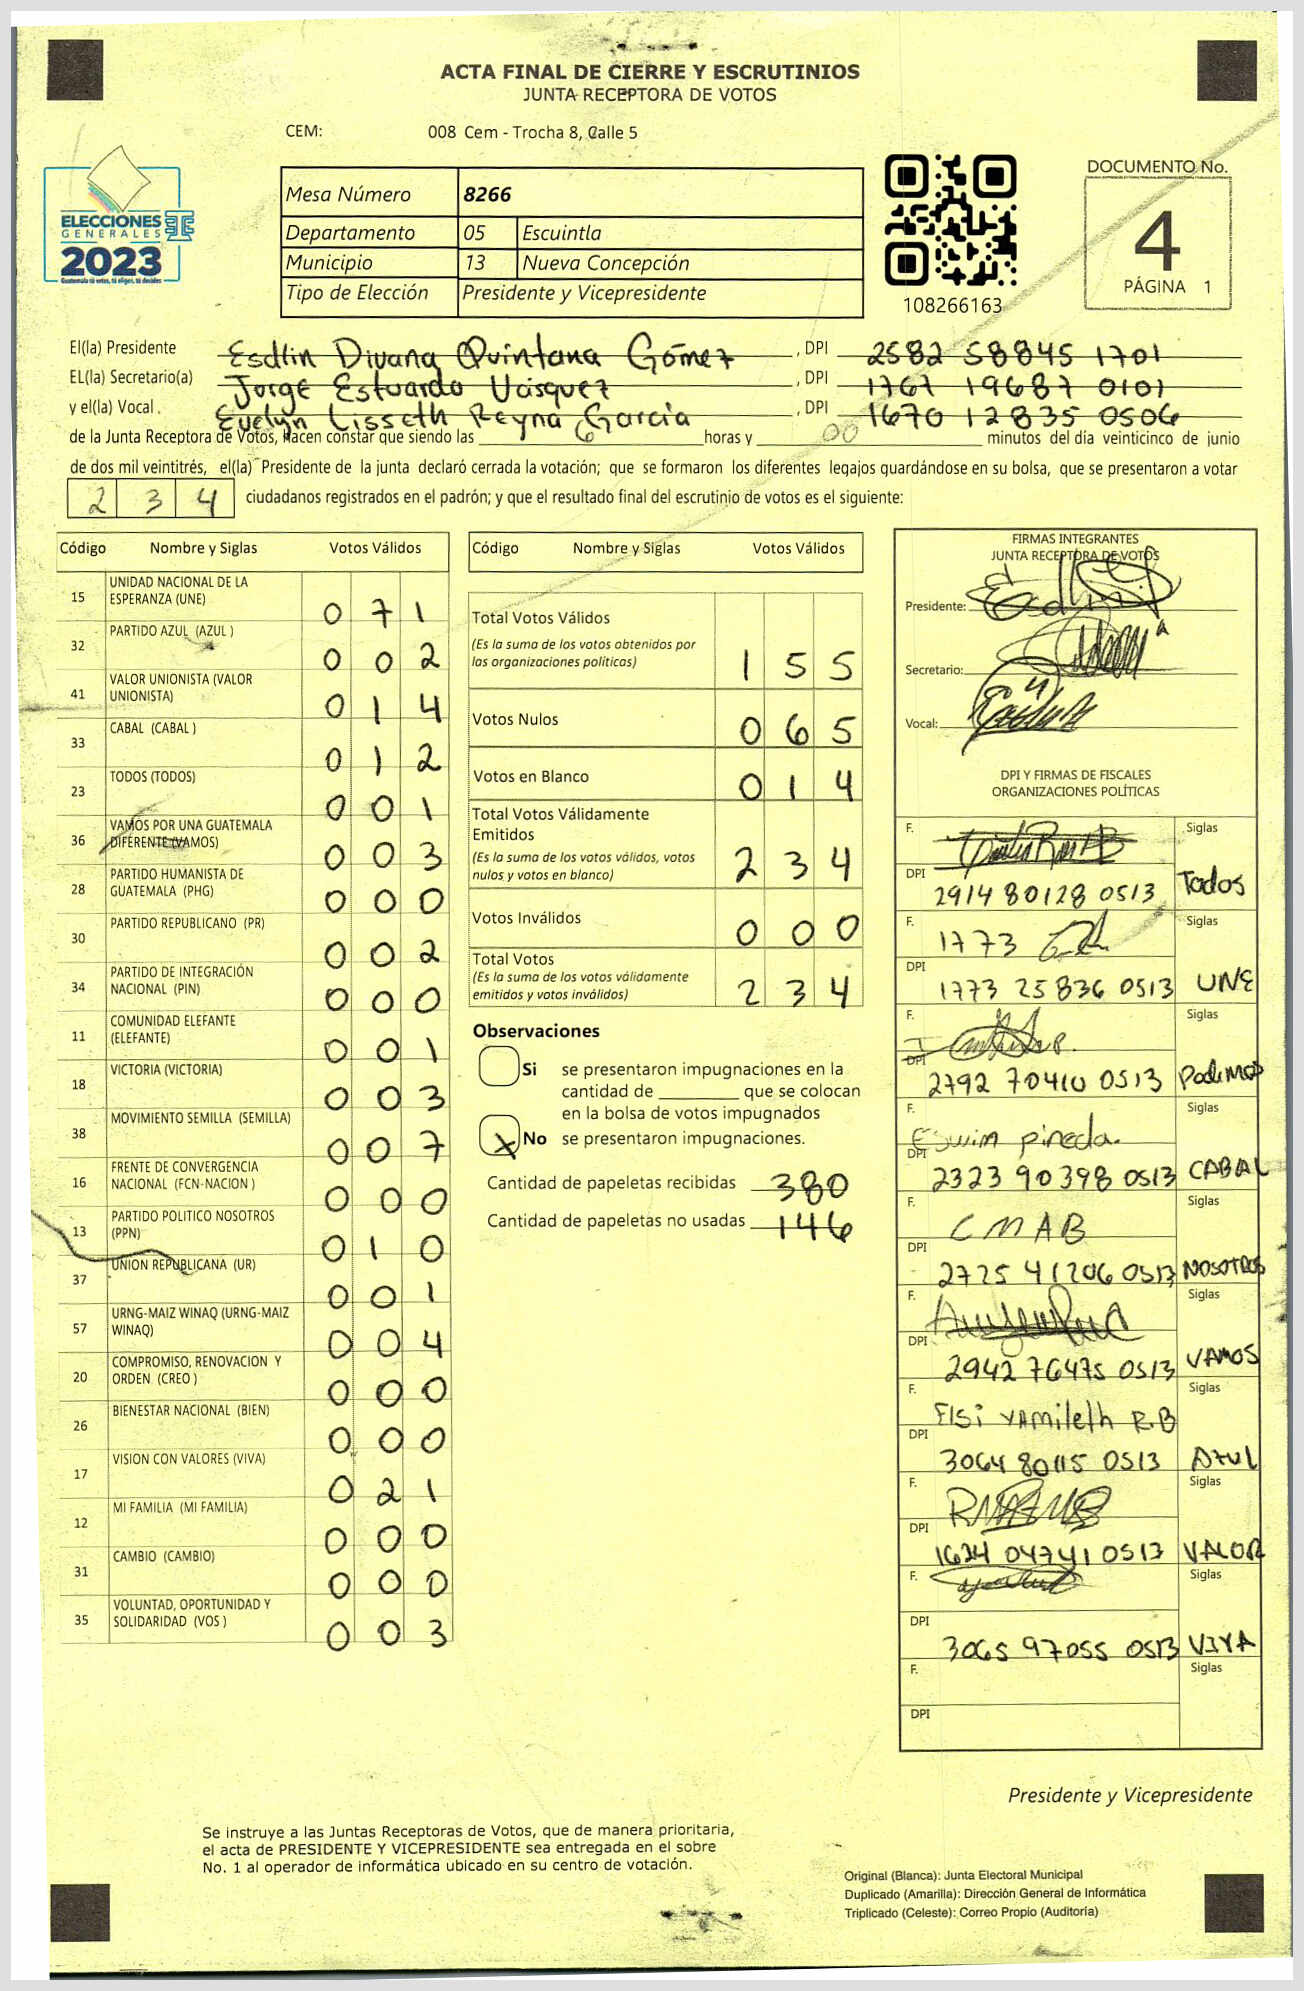 ACTA FINAL DE CIERRE Y ESCRUTINIOS
JUNTA RECEPTORA DE VOTOS
CEM: 008 Cem - Trocha 8, Calle 5
ELECCIONES
GENERALES
2023
Guatemala tú votas, tú eliges, tú decides
Mesa Número 8266
Departamento 05 Escuintla
Municipio 13 Nueva Concepción
Tipo de Elección Presidente y Vicepresidente
108266163
DOCUMENTO No.
4
PÁGINA 1
El(la) Presidente Esdlin Divana Quintana Gómez , DPI 2582 58845 1701
EL(la) Secretario(a) Jorge Estuardo Vásquez , DPI 1767 19687 0101
y el(la) Vocal. Evelyn Lisseth Reyna García , DPI 1670 12835 0506
de la Junta Receptora de Votos, hacen constar que siendo las 6 horas y 00 minutos del día veinticinco de junio
de dos mil veintitrés, el(la) Presidente de la junta declaró cerrada la votación; que se formaron los diferentes legajos guardándose en su bolsa, que se presentaron a votar
2 3 4 ciudadanos registrados en el padrón; y que el resultado final del escrutinio de votos es el siguiente:
Código Nombre y Siglas Votos Válidos
15 UNIDAD NACIONAL DE LA
ESPERANZA (UNE) 0 7 1
32 PARTIDO AZUL (AZUL ) 0 0 2
41 VALOR UNIONISTA (VALOR
UNIONISTA) 0 1 4
33 CABAL (CABAL ) 0 1 2
23 TODOS (TODOS) 0 0 1
36 VAMOS POR UNA GUATEMALA
DIFERENTE (VAMOS) 0 0 3
28 PARTIDO HUMANISTA DE
GUATEMALA (PHG) 0 0 0
30 PARTIDO REPUBLICANO (PR) 0 0 2
34 PARTIDO DE INTEGRACIÓN
NACIONAL (PIN) 0 0 0
11 COMUNIDAD ELEFANTE
(ELEFANTE) 0 0 1
18 VICTORIA (VICTORIA) 0 0 3
38 MOVIMIENTO SEMILLA (SEMILLA) 0 0 7
16 FRENTE DE CONVERGENCIA
NACIONAL (FCN-NACION ) 0 0 0
13 PARTIDO POLITICO NOSOTROS
(PPN) 0 1 0
37 UNION REPUBLICANA (UR) 0 0 1
57 URNG-MAIZ WINAQ (URNG-MAIZ
WINAQ) 0 0 4
20 COMPROMISO, RENOVACION Y
ORDEN (CREO ) 0 0 0
26 BIENESTAR NACIONAL (BIEN) 0 0 0
17 VISION CON VALORES (VIVA) 0 2 1
12 MI FAMILIA (MI FAMILIA) 0 0 0
31 CAMBIO (CAMBIO) 0 0 0
35 VOLUNTAD, OPORTUNIDAD Y
SOLIDARIDAD (VOS ) 0 0 3
Código Nombre y Siglas Votos Válidos
Total Votos Válidos
(Es la suma de los votos obtenidos por
las organizaciones políticas) 1 5 5
Votos Nulos 0 6 5
Votos en Blanco 0 1 4
Total Votos Válidamente
Emitidos
(Es la suma de los votos válidos, votos
nulos y votos en blanco) 2 3 4
Votos Inválidos 0 0 0
Total Votos
(Es la suma de los votos válidamente
emitidos y votos inválidos) 2 3 4
Observaciones
Si se presentaron impugnaciones en la
cantidad de ________ que se colocan
en la bolsa de votos impugnados
X No se presentaron impugnaciones.
Cantidad de papeletas recibidas 380
Cantidad de papeletas no usadas 146
FIRMAS INTEGRANTES
JUNTA RECEPTORA DE VOTOS
Presidente:
Secretario:
Vocal:
DPI Y FIRMAS DE FISCALES
ORGANIZACIONES POLÍTICAS
F. Siglas
DPI 2914 80128 0513 Todos
F. 1773 Siglas
DPI 1773 25836 0513 UNE
F. Siglas
DPI 2792 70410 0513 Podemos
F. Eswin pineda. Siglas
DPI 2323 90398 0513 CABAL
F. CMAB Siglas
DPI 2725 41206 0513 NOSOTROS
F. Siglas
DPI 2942 76475 0513 VAMOS
F. Elsi YAmileth R.B Siglas
DPI 3064 80115 0513 AZUL
F. Siglas
DPI 1624 04741 0513 VALOR
F. Siglas
DPI 3065 97055 0513 VIVA
F. Siglas
DPI
Presidente y Vicepresidente
Se instruye a las Juntas Receptoras de Votos, que de manera prioritaria,
el acta de PRESIDENTE Y VICEPRESIDENTE sea entregada en el sobre
No. 1 al operador de informática ubicado en su centro de votación.
Original (Blanca): Junta Electoral Municipal
Duplicado (Amarilla): Dirección General de Informática
Triplicado (Celeste): Correo Propio (Auditoría)